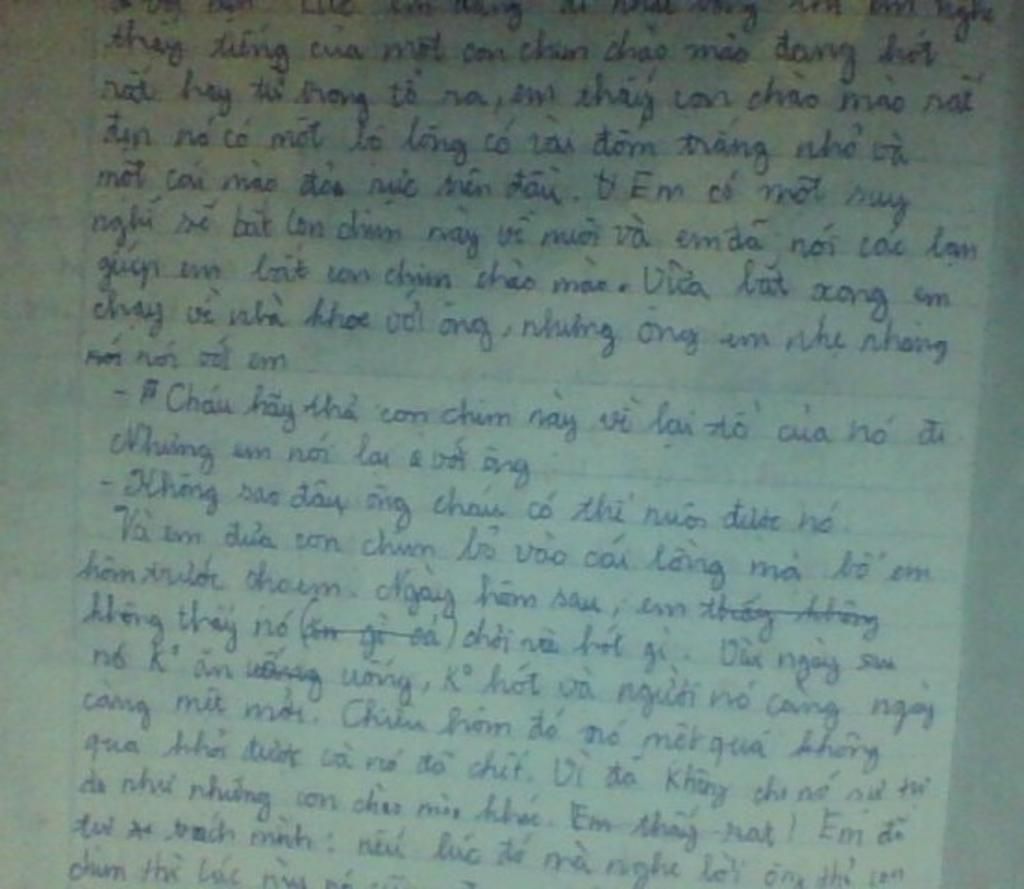 em nghe
thấy tiếng của một con chim chào mào đang hót
rất hay từ trong tổ ra, em thấy con chào mào rất
đẹp nó có một bộ lông có vài đốm trắng nhỏ và
một cái mào đỏ rực trên đầu. Em có một suy
nghĩ sẽ bắt con chim này về nuôi và em đã nói các bạn
giúp em bắt con chim chào mào. Vừa bắt xong em
chạy về nhà khoe với ông, nhưng ông em nhẹ nhàng
nói nói với em
- Cháu hãy thả con chim này về lại tổ của nó đi
Nhưng em nói lại với ông
- Không sao đâu ông cháu có thể nuôi được nó.
Và em đưa con chim bỏ vào cái lồng mà bố em
hôm trước cho em. Ngày hôm sau, em thấy không
không thấy nó (ăn gì cả) chơi và hót gì. Vài ngày sau
nó K° ăn uống uống, K° hót và người nó càng ngày
càng mệt mỏi. Chiều hôm đó nó mệt quá không
qua khỏi được và nó đã chết. Vì đã không cho nó sự tự
do như những con chào mào khác. Em thấy rất! Em đã
tự trách mình: nếu lúc đó mà nghe lời ông thả con
chim thì lúc này nó